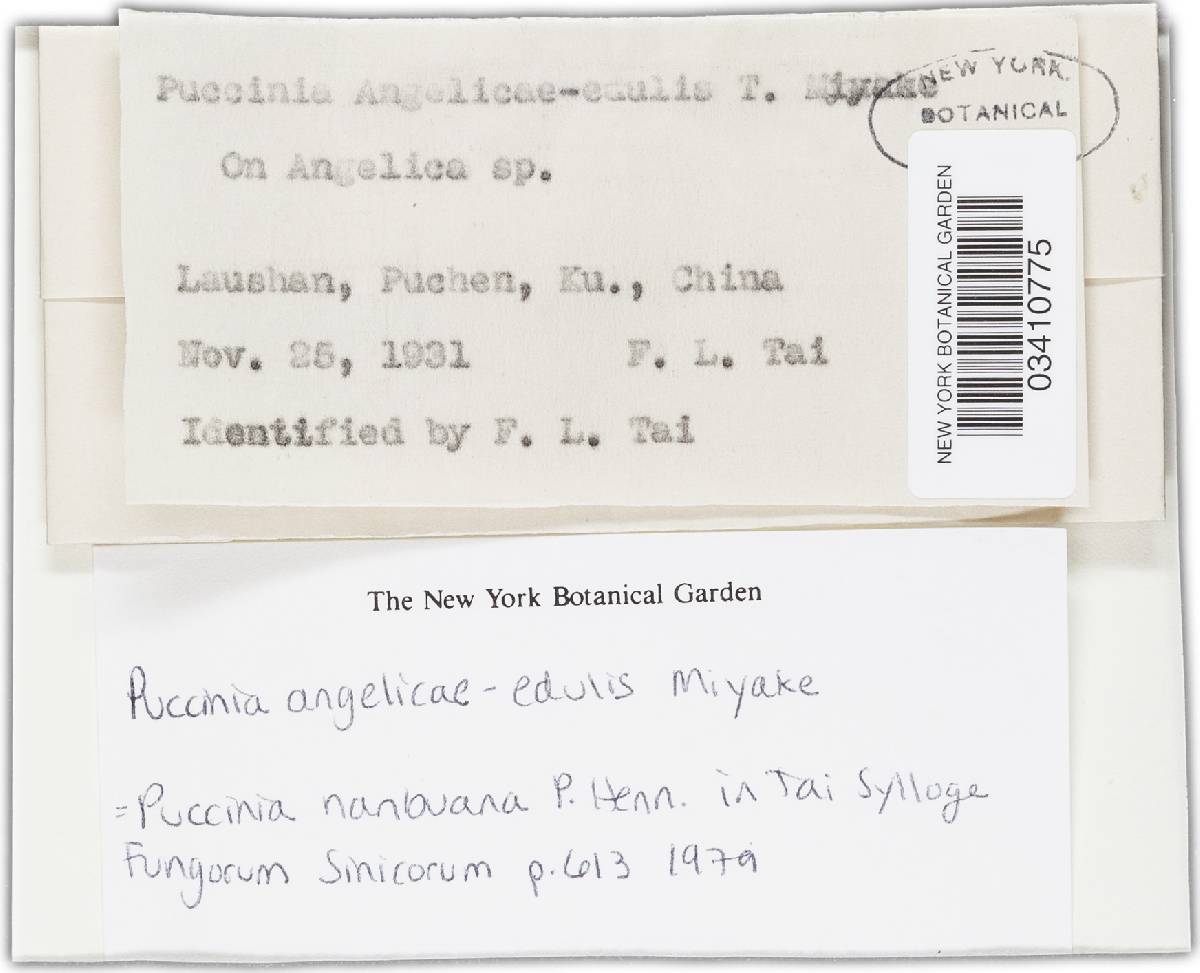 Puccinia Angelicae-edulis T. Miyake
On Angelica sp.
Laushan, Puchen, Ku., China
Nov. 25, 1931 F. L. Tai
Identified by F. L. Tai
NEW YORK
BOTANICAL
NEW YORK BOTANICAL GARDEN
03410775
The New York Botanical Garden
Puccinia angelicae-edulis Miyake
=Puccinia nanbuana P. Henn. in Tai Sylloge
Fungorum Sinicorum p.613 1979